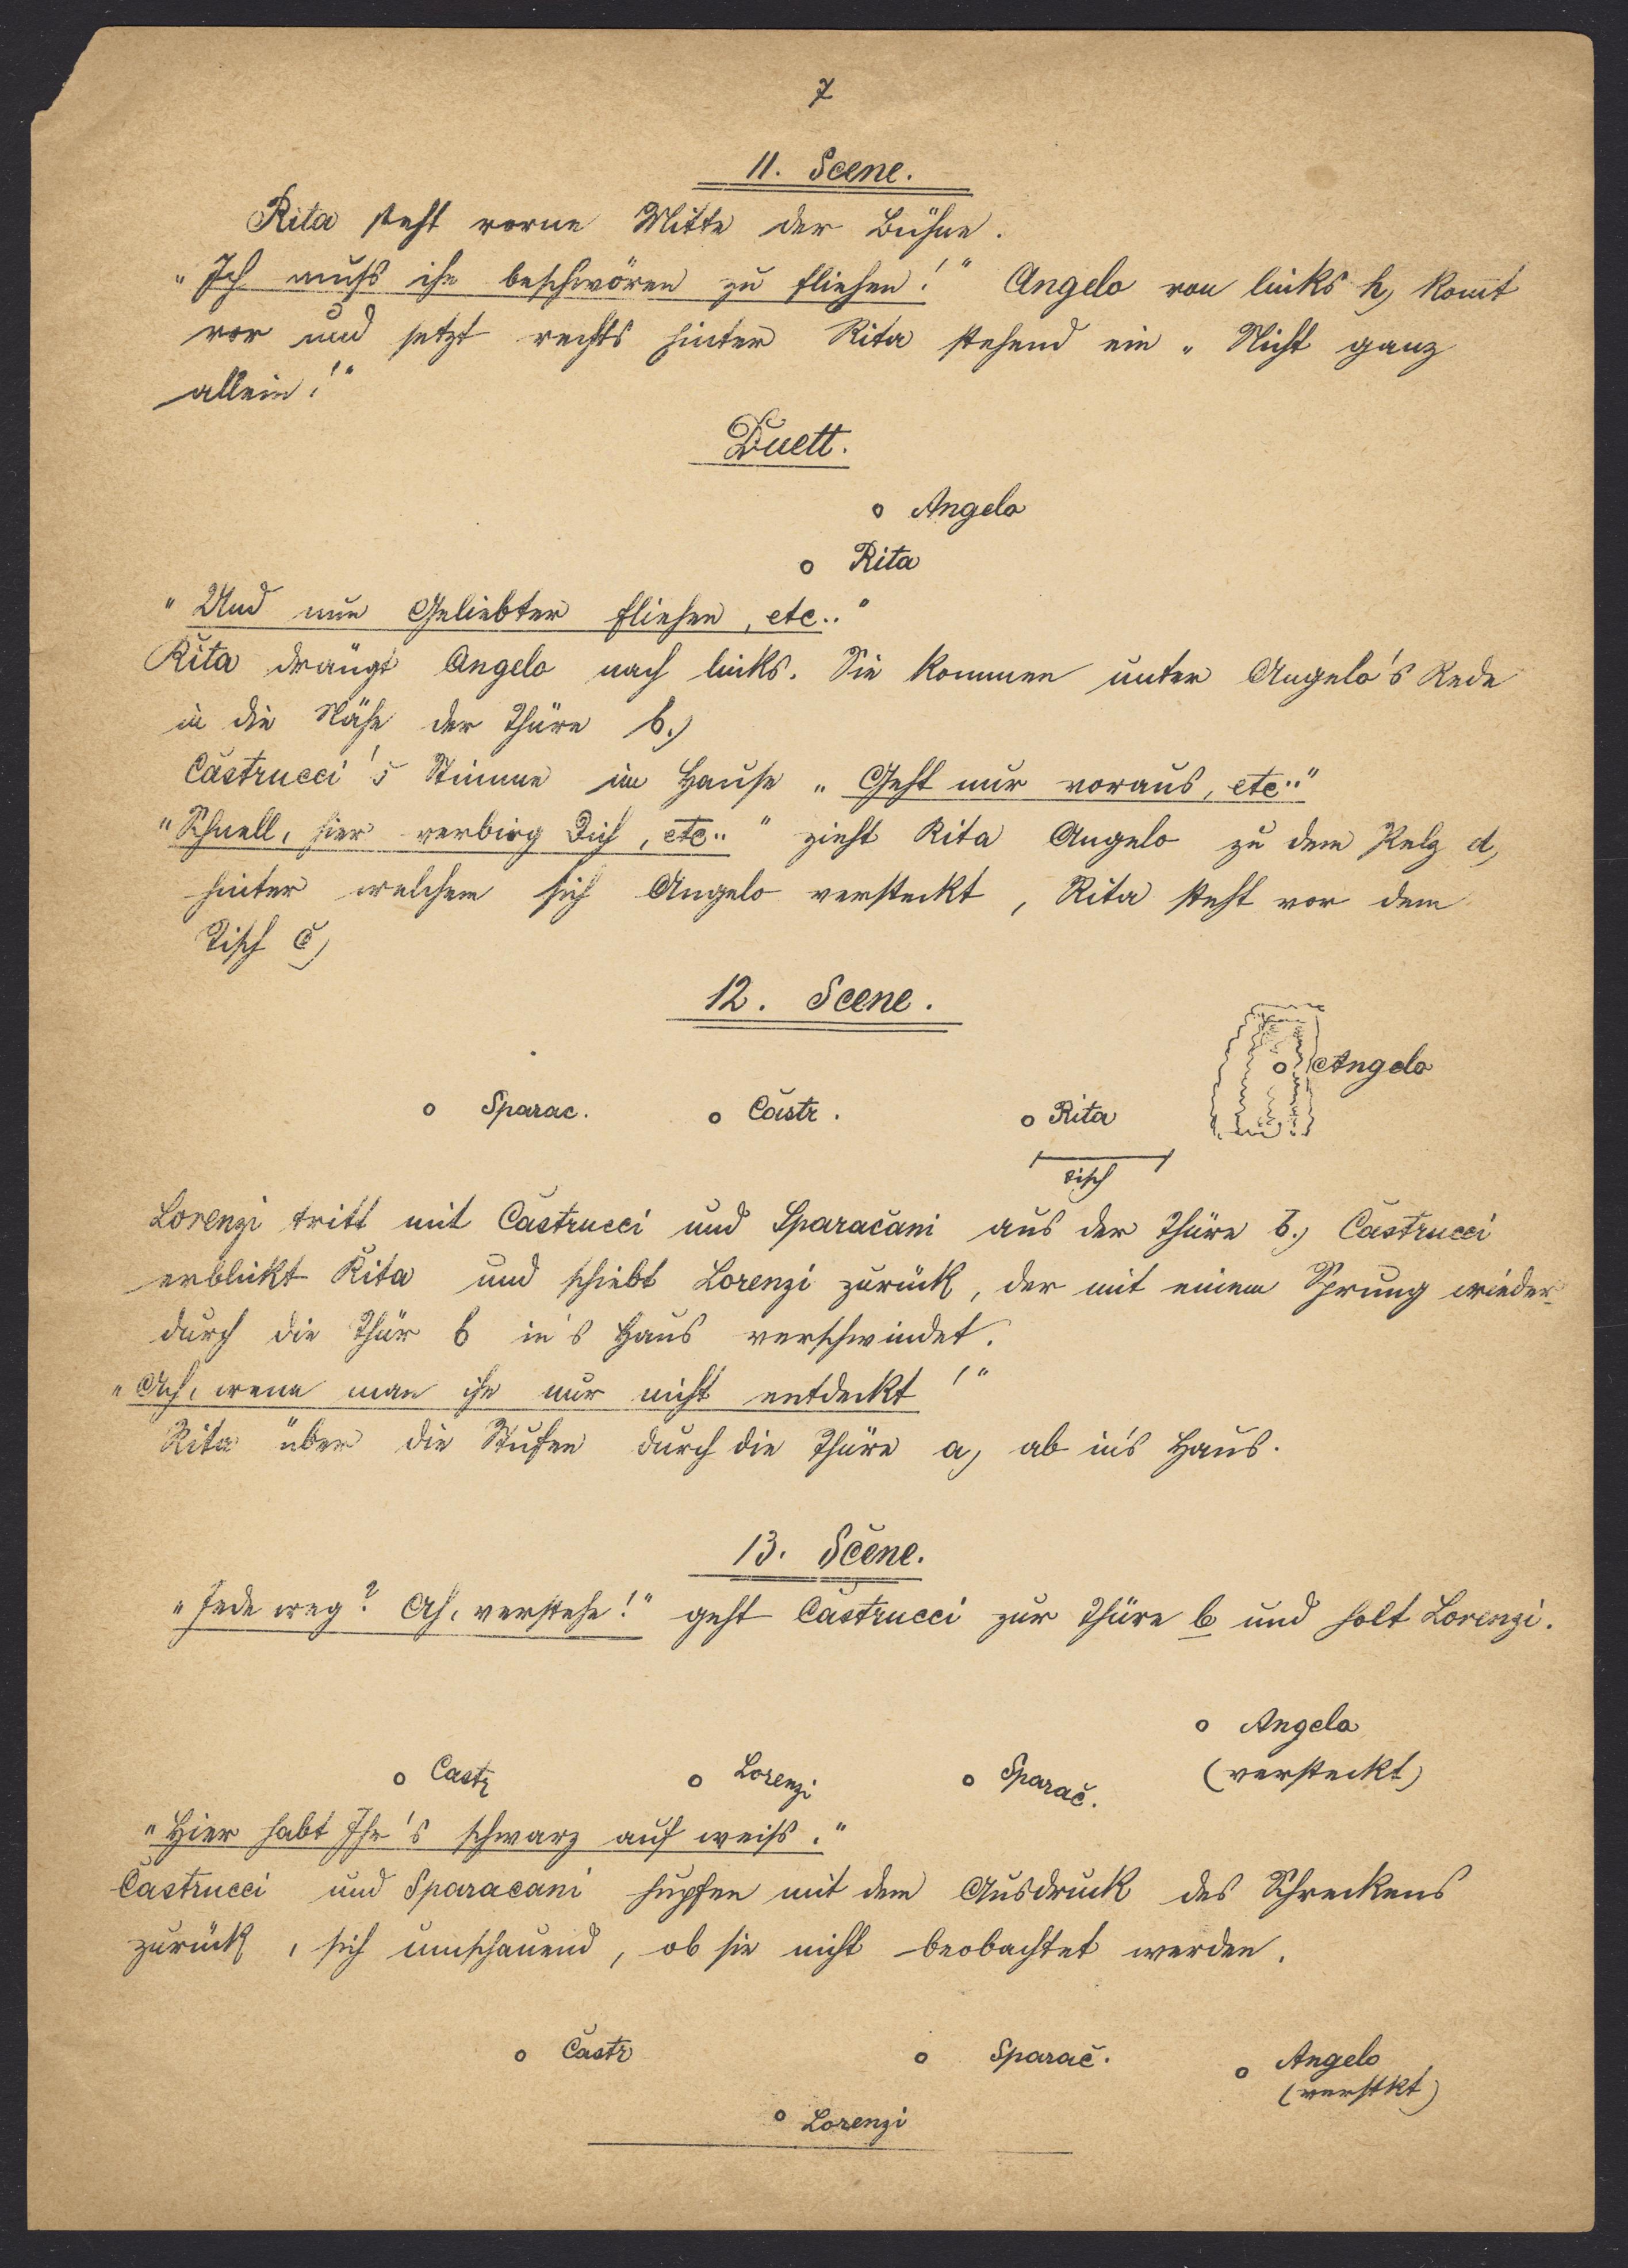 7
11. Scene.
Rita steht vorne Mitte der Bühne.
"Ich muss ihn beschwören zu fliehen!" Angelo von links h, kom̄t
vor und setzt rechts hinter Rita stehend ein „Nicht ganz
allein!"
Duett.
o Angelo
o Rita
"Und nun Geliebter fliehen, etc.."
Rita drängt Angelo nach links. Sie kommen unter Angelo's Rede
in die Nähe der Thüre b.)
Castrucci's Stimme im Hause „Geht nur voraus, etc.."
"Schnell, hier verbirg Dich, etc.." zieht Rita Angelo zu dem Pelz d,
hinter welchem sich Angelo versteckt, Rita steht vor dem
Tisch c)
12. Scene.
o Angelo
o Sparac. o Castr. o Rita
Tisch
Lorenzi tritt mit Castrucci und Sparacani aus der Thüre b.) Castrucci
erblickt Rita und schiebt Lorenzi zurück, der mit einem Sprung wieder
durch die Thür b in's Haus verschwindet.
„Ach, wenn man ihn nur nicht entdeckt!"
Rita über die Stufen durch die Thüre a, ab in's Haus.
13. Scene.
„Jede weg? Ah, verstehe!" geht Castrucci zur Thüre b und holt Lorenzi.
o Angelo
o Castr o Lorenzi o Sparac. (versteckt)
"Hier habt Ihr's schwarz auf weiss."
Castrucci und Sparacani hupfen mit dem Ausdruck des Schreckens
zurück, sich umschauend, ob sie nicht beobachtet werden.
o Castr o Sparac. o Angelo
(verstkt)
o Lorenzi